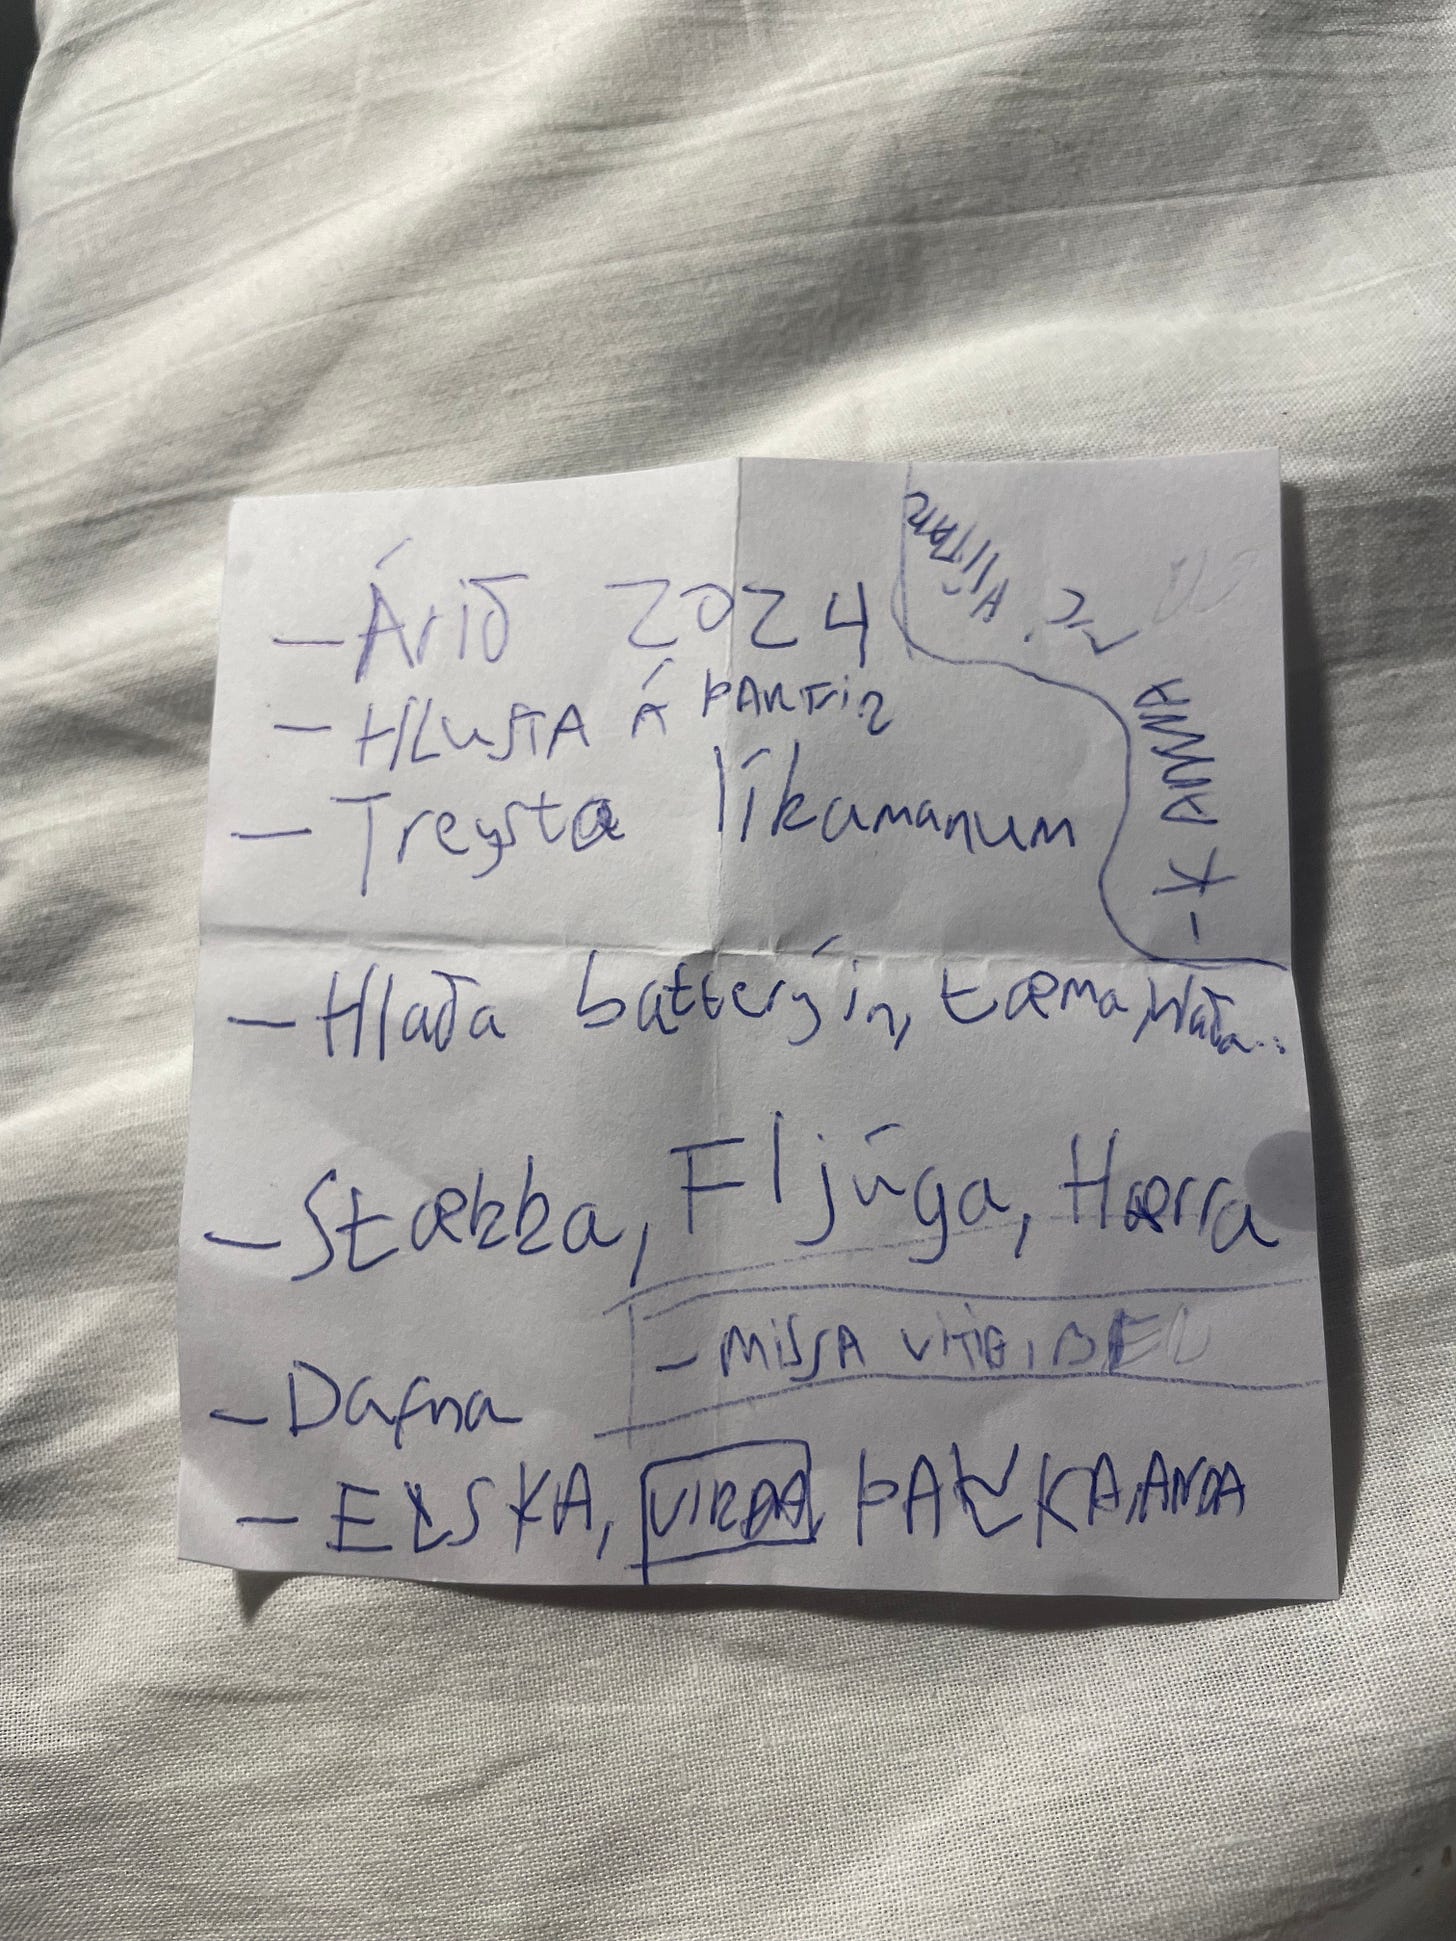 – Árið 2024
– HLUSTA Á ÞARFIR
– Treysta líkamanum
– K ANNA
– Hlaða batterýin, tæma, hlaða...
– Stækka, Fljúga, Hærra
– MISSA
– Dafna
– ELSKA, VIRÐA, ÞAKKA, ANDA